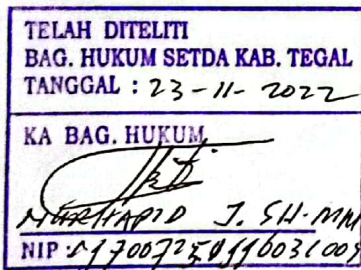 TELAH DITELITI
BAG. HUKUM SETDA KAB. TEGAL
TANGGAL : 23-11-2022
KA BAG. HUKUM
NURHAPID J. SH-MM
NIP : 197007251996031005